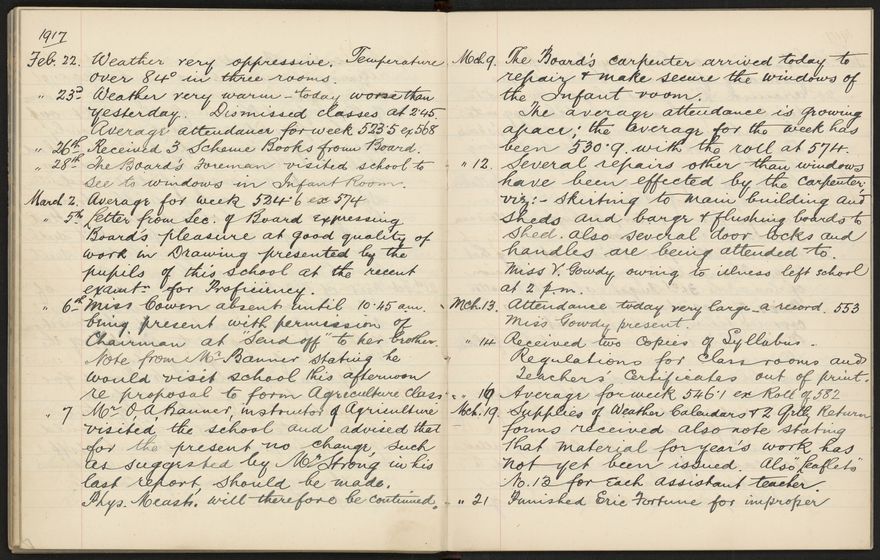 1917
Feb. 22. Weather very oppressive. Temperature
over 84° in three rooms.
" 23d Weather very warm - today worse than
yesterday. Dismissed classes at 2.45.
Average attendance for week 523.5 ex 568
" 26th Received 3 Scheme Books from Board.
" 28th The Board's Foreman visited school to
see to windows in Infant Room.
March 2. Average for week 524.6 ex 574
" 5th Letter from Sec. of Board expressing
Board's pleasure at good quality of
work in Drawing presented by the
pupils of this school at the recent
examtn for Proficiency.
" 6th Miss Cowen absent until 10.45 am.
being present with permission of
Chairman at "Send off" to her brother.
Note from Mr Banner stating he
would visit school this afternoon
re proposal to form Agriculture class.
" 7 Mr O A Banner, instructor of Agriculture
visited the school and advised that
for the present no change, such
as suggested by Mr Strong in his
last report, should be made.
Phys. Measts. will therefore be continued.
Mch. 9. The Board's carpenter arrived today to
repair & make secure the windows of
the Infant room.
The average attendance is growing
apace; the average for the week has
been 530.9. with the roll at 574.
" 12. Several repairs other than windows
have been effected by the Carpenter,
viz:- skirting to main building and
sheds and barge & flushing boards to
shed. also several door locks and
handles are being attended to.
Miss V. Gowdy owing to illness left school
at 2 p.m.
Mch. 13. Attendance today very large - a record. 553
Miss Gowdy present.
" 14 Received two Copies of Syllabus.
Regulations for Class rooms and
Teachers' Certificates out of print.
" 16 Average for week 546.1 ex Roll of 582
Mch. 19. Supplies of Weather Calendars & 2 Qrtly Return
forms received also note stating
that material for year's work has
not yet been issued. Also "leaflets"
No. 13 for each assistant teacher.
" 21 Punished Eric Fortune for improper